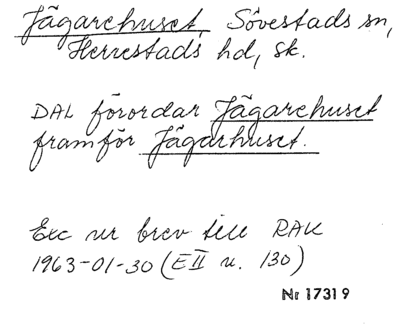 Jägarehuset, Sövestads sn,
Herrestads hd, sk.
DAL förordar Jägarehuset
framför Jägarhuset.
Exc ur brev till RAK
1963-01-30 (E II u. 130)
Nr 17319